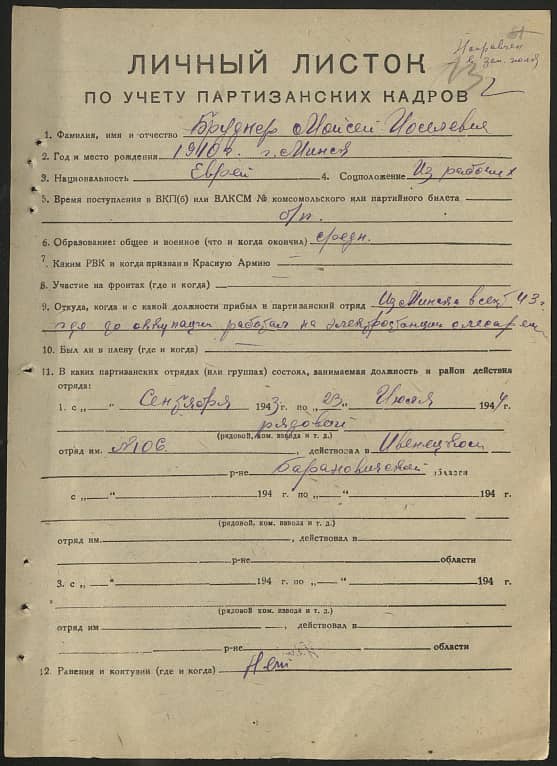 Направлен
в зап. полк
ЛИЧНЫЙ ЛИСТОК
ПО УЧЕТУ ПАРТИЗАНСКИХ КАДРОВ
1. Фамилия, имя и отчество Бруднер Мойсей Иоселевич
2. Год и место рождения 1910 г. г. Минск
3. Национальность Еврей 4. Соцположение Из рабочих
5. Время поступления в ВКП(б) или ВЛКСМ № комсомольского или партийного билета
б/п.
6. Образование: общее и военное (что и когда окончил) средн.
7. Каким РВК и когда призван в Красную Армию
8. Участие на фронтах (где и когда)
9. Откуда, когда и с какой должности прибыл в партизанский отряд Из Минска в сент 43 г.
где до оккупации работал на электростанции слесарем
10. Был ли в плену (где и когда)
11. В каких партизанских отрядах (или группах) состоял, занимаемая должность и район действия
отряда:
1. с „ “ Сентября 1943 г. по „23“ Июля 1944 г.
рядовой
(рядовой, ком. взвода и т. д.)
отряд им. №106 , действовал в Ивенецком
р-не Барановичской области
с „ — “ 194 г. по „ — “ 194 г.
(рядовой, ком. взвода и т. д.)
отряд им. , действовал в
р-не области
3. с „ — “ 194 г. по „ — “ 194 г.
(рядовой, ком. взвода и т. д.)
отряд им , действовал в
р-не области
12. Ранения и контузии (где и когда) Нет